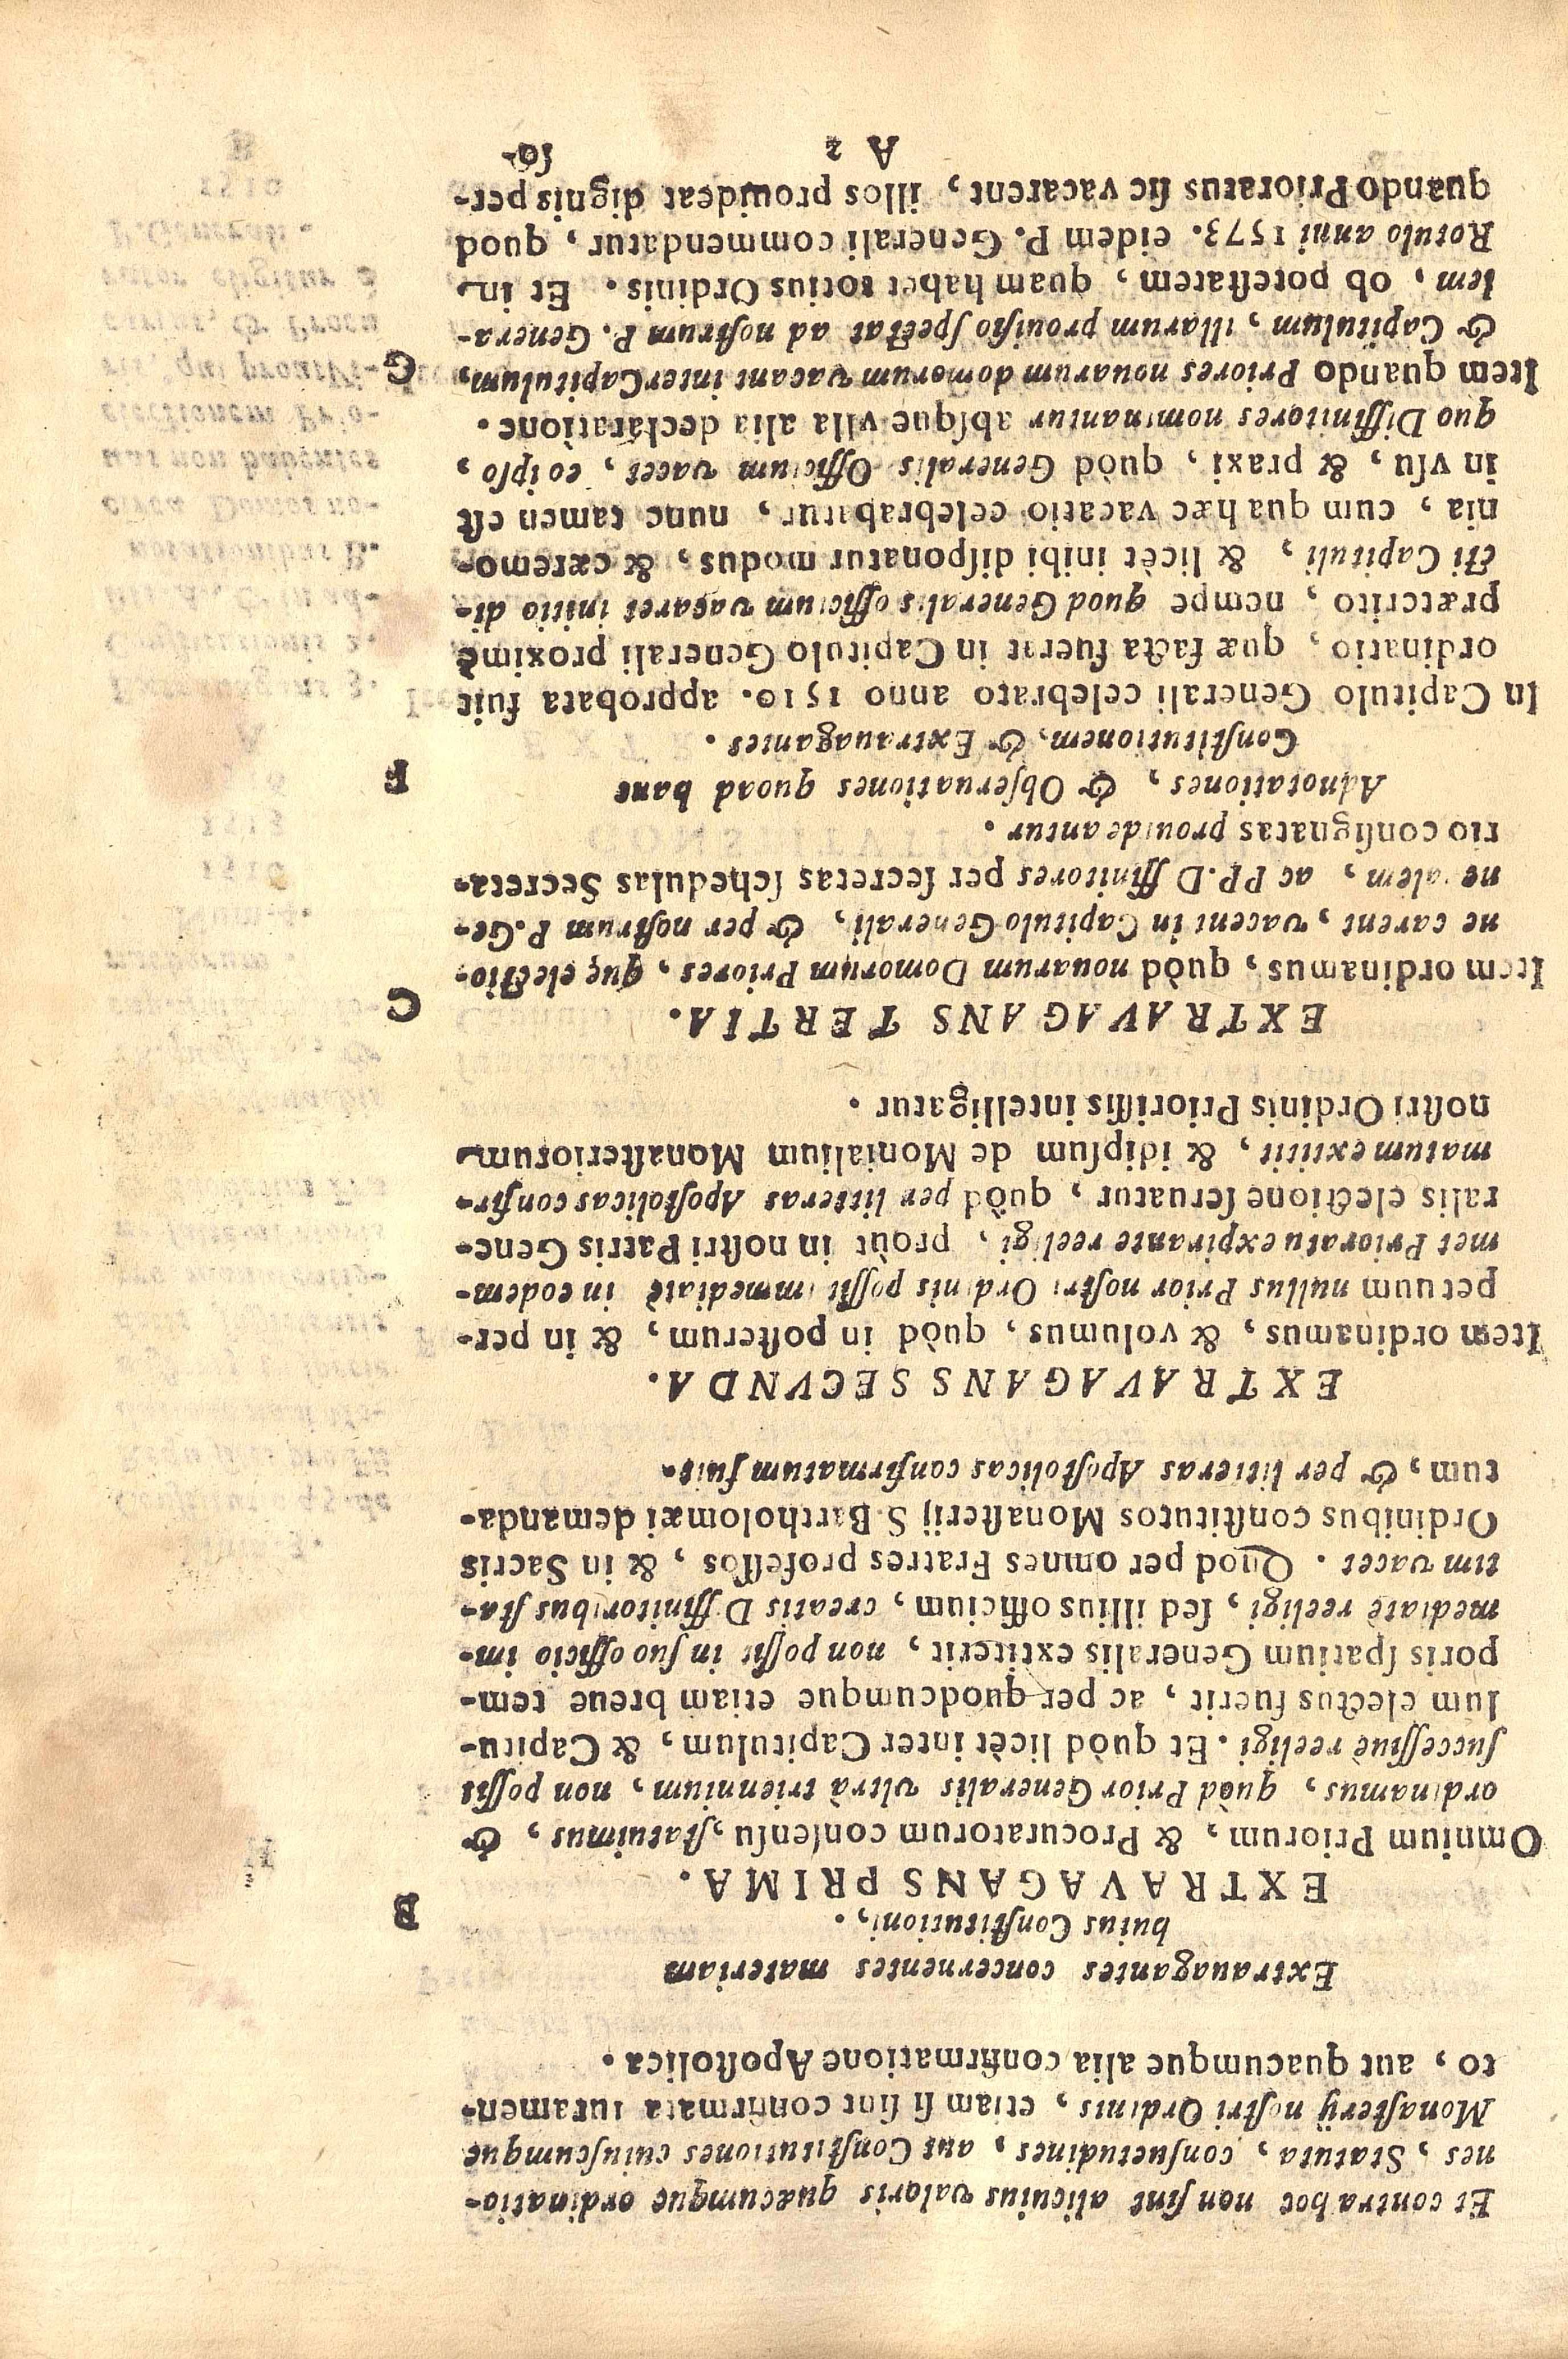 Et contra hoc non sint alicuius valoris quæcumque ordinatio-
nes, Statuta, consuetudines, aut Constitutiones cuiuscumque
Monasterij nostri Ordinis, etiam si sint confirmata iuramen-
to, aut quacumque alia confirmatione Apostolica.
Extrauagantes concernentes materiam
huius Constitutioni,.
B
EXTRAVAGANS PRIMA.
Omnium Priorum, & Procuratorum consensu, statuimus, &
ordinamus, quòd Prior Generalis vltrà triennium, non possit
successiuè reeligi. Et quòd licèt inter Capitulum, & Capitu-
lum electus fuerit, ac per quodcumque etiam breue tem-
poris spatium Generalis extiterit, non possit in suo officio im-
mediatè reeligi, sed illius officium, creatis D ffinitoribus sta-
tim vacet. Quod per omnes Fratres professos, & in Sacris
Ordinibus constitutos Monasterij S. Bartholomæi demanda-
tum, & per litteras Apostolicas confirmatum fuit.
EXTRAVAGANS SECVNDA.
Item ordinamus, & volumus, quòd in posterum, & in per-
petuum nullus Prior nostri Ordinis possit immediatè in eodem-
met Prioratu expirante reeligi, proùt in nostri Patris Gene-
ralis electione seruatur, quòd per litteras Apostolicas confir-
matum extitit, & idipsum de Monialium Monasteriorum
nostri Ordinis Priorissis intelligatur.
EXTRAVAGANS TERTIA.
C
Item ordinamus, quòd nouarum Domorum Priores, quę electio-
ne carent, vacent in Capitulo Generali, & per nostrum P. Ge-
ne alem, ac PP. D ffinitores per secretas schedulas Secreta-
rio consignatas prouideantur.
Adnotationes, & Obseruationes quoad hanc
F
Constitutionem, & Extrauagantes.
In Capitulo Generali celebrato anno 1510. approbata fuit
ordinatio, quæ facta fuerat in Capitulo Generali proximè
præterito, nempe quod Generalis officium vacaret initio di-
cti Capituli, & licèt inibi disponatur modus, & cæremo-
nia, cum qua hæc vacatio celebrabatur, nunc tamen est
in vsu, & praxi, quòd Generalis Officium vacet, eòipso,
quo Diffinitores nominantur absque vlla alia declaratione.
Item quando Priores nouarum domorum vacant inter Capitulum,
G
& Capitulum, illarum prouisio spectat ad nostrum P. Genera-
lem, ob potestatem, quam habet totius Ordinis. Et in
Rotulo anni 1573. eidem P. Generali commendatur, quod
quando Prioratus sic vacarent, illos prouideat dignis per-
A 2
so-